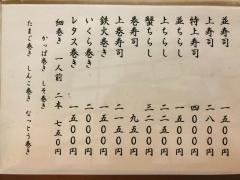 並寿司 一五〇〇円
上寿司 二八〇〇円
特上寿司 四〇〇〇円
並ちらし 一五〇〇円
上ちらし 二五〇〇円
蟹ちらし 三二〇〇円
巻寿司 九五〇円
上巻寿司 二一五〇円
鉄火巻き 一五〇〇円
いくら巻き 一五〇〇円
レタス巻き 一五〇〇円
細巻き 一人前 二本 七五〇円
かっぱ巻き しそ巻き
たまご巻き しんこ巻き なっとう巻き